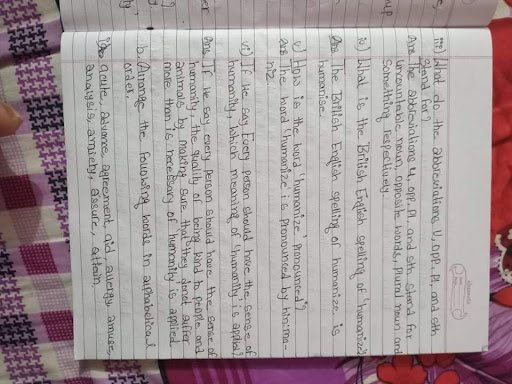 iii) What do the abbreviations U, opp, Pl, and sth
stand for?
Ans The abbreviations U, opp, Pl and sth stand for
uncountable noun, opposite words, plural noun and
something respectively.
iv) What is the British English spelling of 'humanize'?
Ans The British English spelling of humanize is
humanise.
v) How is the word 'humanize' pronounced?
Ans The word 'humanize' is pronounced by hju:mə-
naɪz.
vi) If we say Every person should have the sense of
humanity, which meaning of 'humanity' is applied?
Ans If we say every person should have the sense of
humanity, the quality of being kind to people and
animals by making sure that they don't suffer
more than is necessary of 'humanity' is applied.
b. Arrange the following words in alphabetical
order.
acute, advance, agreement, aid, allergy, amuse,
analysis, anxiety, assure, attain,